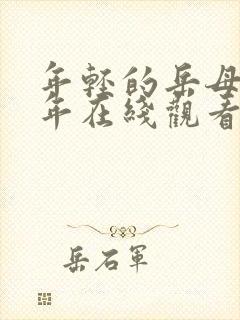 年轻的岳母
年在线觀看
岳石軍